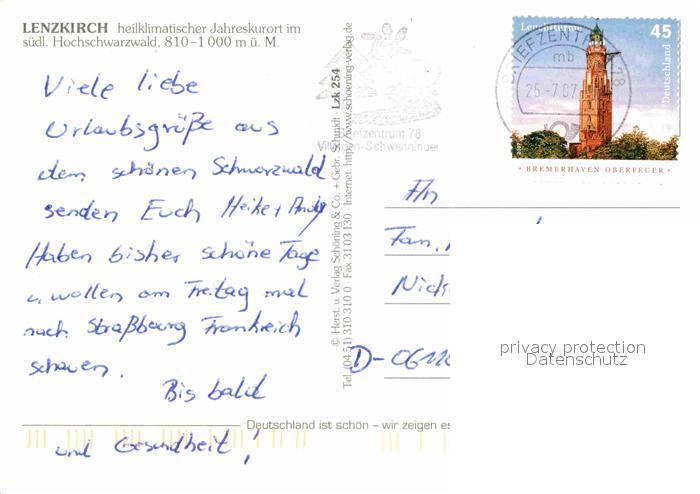 LENZKIRCH heilklimatischer Jahreskurort im
südl. Hochschwarzwald, 810–1 000 m ü. M.
Viele liebe
Urlaubsgrüße aus
dem schönen Schwarzwald
senden Euch Heike + Andy
Haben bisher schöne Tage
u. wollen am Freitag mal
nach Straßbourg Frankreich
schauen.
Bis bald
und Gesundheit!
Deutschland ist schön – wir zeigen es
© Herst. u. Verlag Schöning & Co. + Gebr. Schmidt · Lzk 254
Tel. (04 51) 310 310 0 · Fax 31 03 130 · Internet: http://www.schoening-verlag.de
Briefzentrum 78
Villingen-Schwenningen
BRIEFZENTRUM 78
mb
25.-7.07
Leuchttürme
45
Deutschland
• BREMERHAVEN OBERFEUER •
An
Fam.
D-06110
privacy protection
Datenschutz